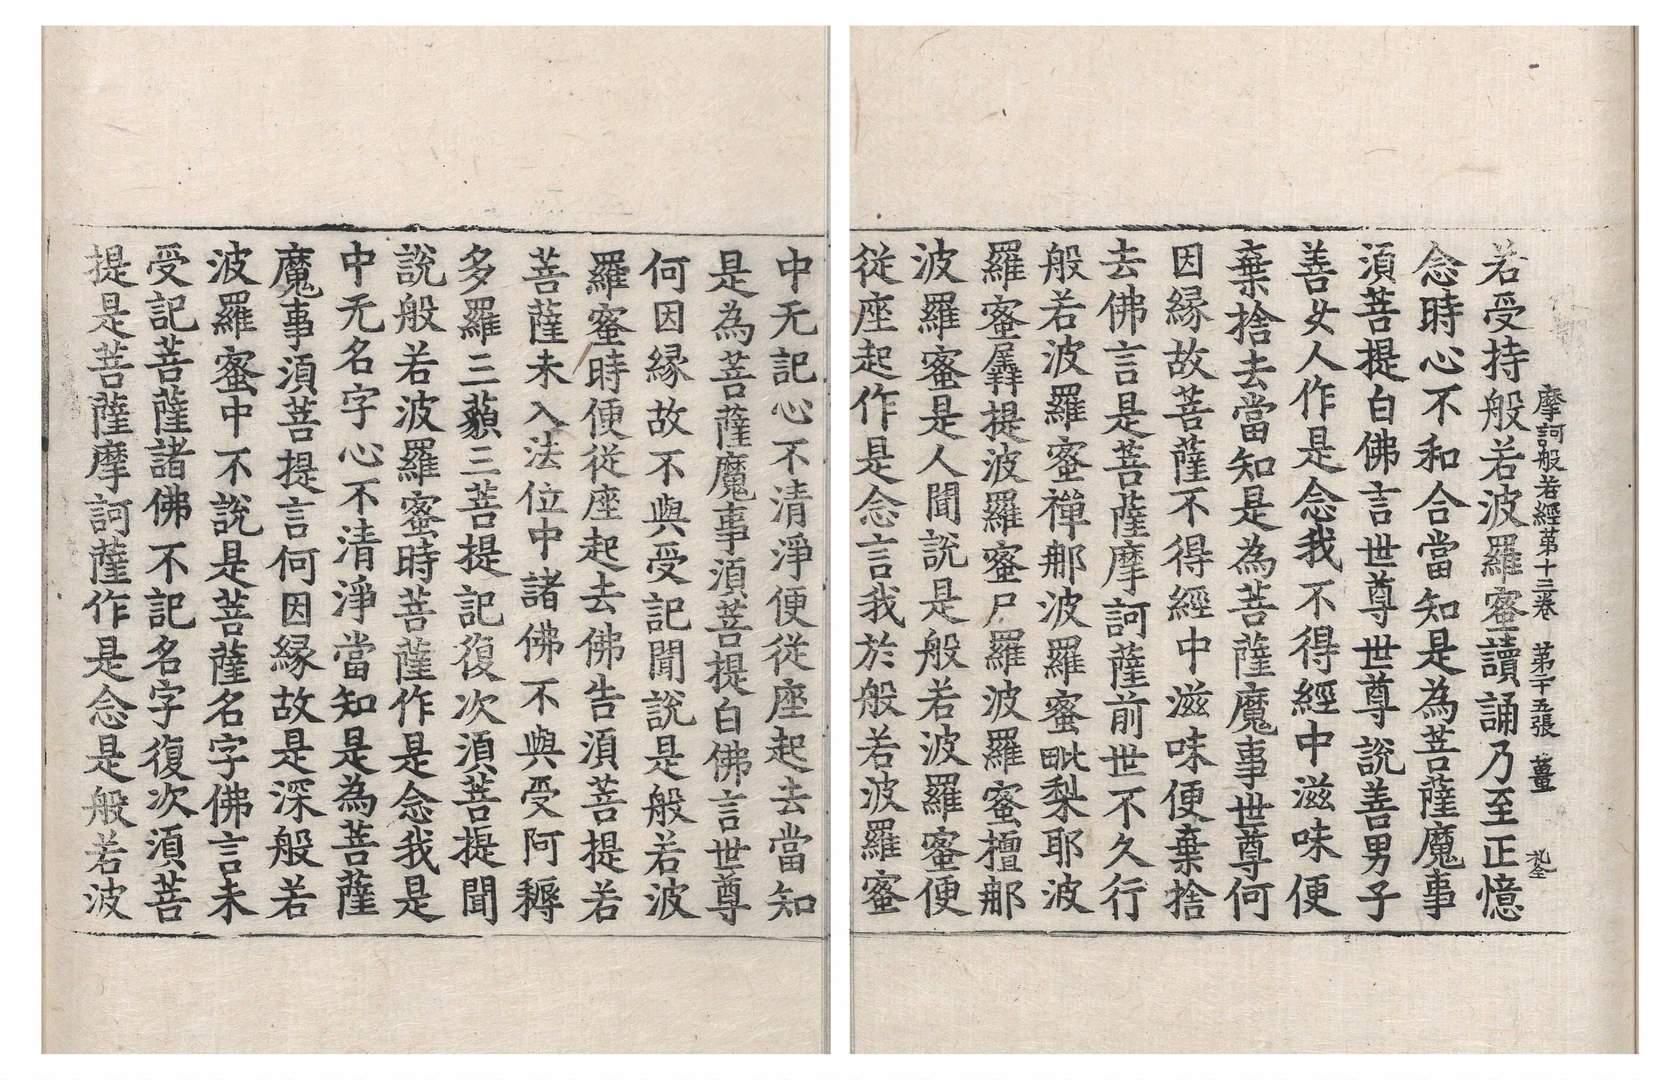 摩訶般若經第十三卷 第二十五張 薑
若受持般若波羅蜜讀誦乃至正憶
念時心不和合當知是為菩薩魔事
須菩提白佛言世尊世尊說善男子
善女人作是念我不得經中滋味便
棄捨去當知是為菩薩魔事世尊何
因緣故菩薩不得經中滋味便棄捨
去佛言是菩薩摩訶薩前世不久行
般若波羅蜜禪那波羅蜜毗梨耶波
羅蜜羼提波羅蜜尸羅波羅蜜檀那
波羅蜜是人聞說是般若波羅蜜便
從座起作是念言我於般若波羅蜜
中无記心不清淨便從座起去當知
是為菩薩魔事須菩提白佛言世尊
何因緣故不與受記聞說是般若波
羅蜜時便從座起去佛告須菩提若
菩薩未入法位中諸佛不與受阿耨
多羅三藐三菩提記復次須菩提聞
說般若波羅蜜時菩薩作是念我是
中无名字心不清淨當知是為菩薩
魔事須菩提言何因緣故是深般若
波羅蜜中不說是菩薩名字佛言未
受記菩薩諸佛不記名字復次須菩
提是菩薩摩訶薩作是念是般若波